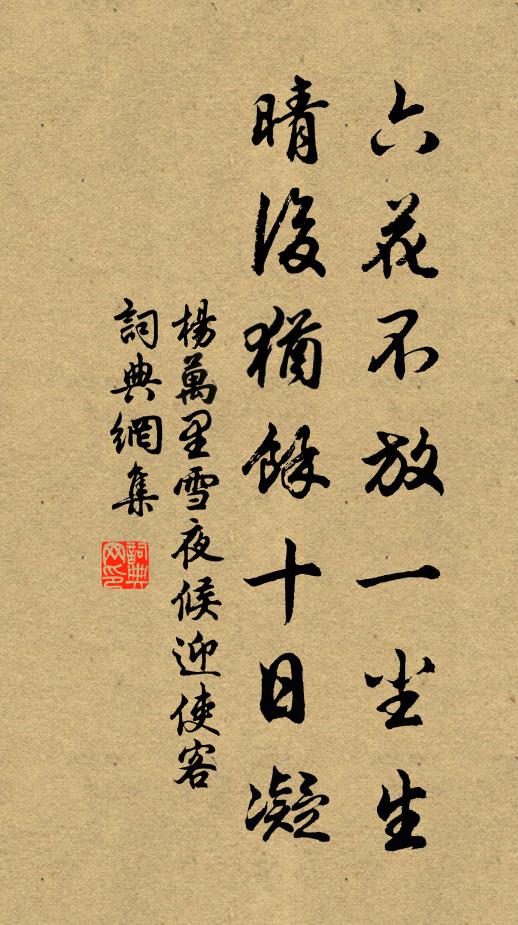 六花不放一尘生
晴後猶餘十日凝
楊萬里雪夜候迎使客
詞典網集
詞典
网印